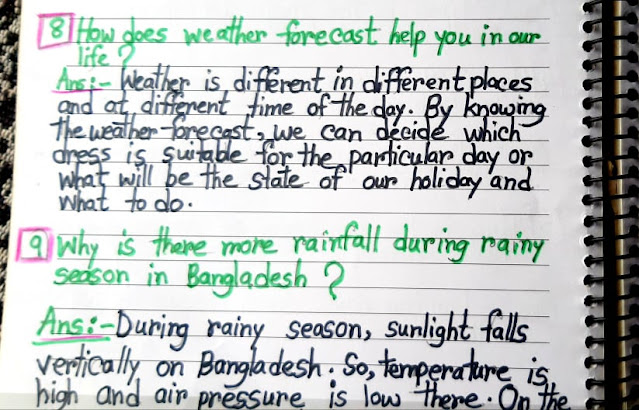 8 How does weather forecast help you in our
life?
Ans:- Weather is different in different places
and at different time of the day. By knowing
the weather forecast, we can decide which
dress is suitable for the particular day or
what will be the state of our holiday and
what to do.
9 Why is there more rainfall during rainy
season in Bangladesh?
Ans:- During rainy season, sunlight falls
vertically on Bangladesh. So, temperature is
high and air pressure is low there. On the